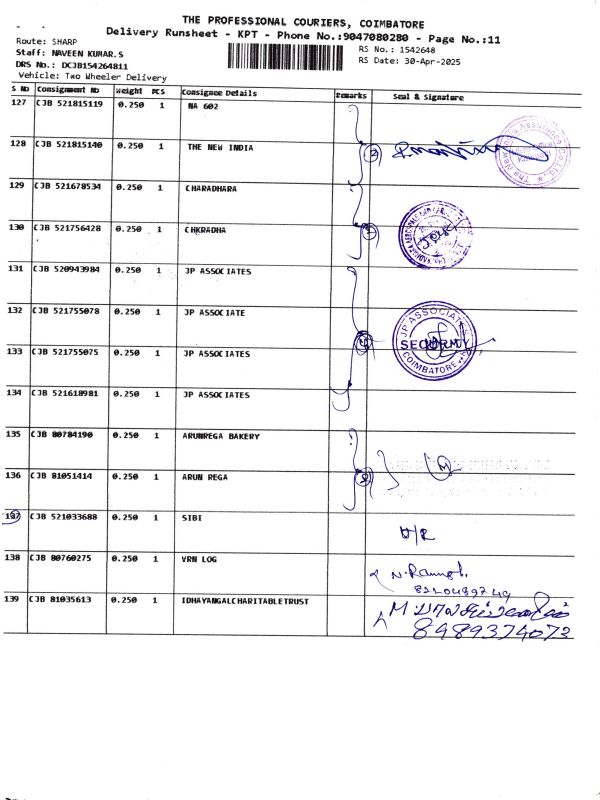 THE PROFESSIONAL COURIERS, COIMBATORE
Delivery Runsheet - KPT - Phone No.:9047080280 - Page No.:11
Route: SHARP
RS No.: 1542648
Staff: NAVEEN KUMAR.S
RS Date: 30-Apr-2025
DRS No.: DCJB154264811
Vehicle: Two Wheeler Delivery
S No Consignment No Weight PCS Consignee Details Remarks Seal & Signature
127 CJB 521815119 0.250 1 NA 602
128 CJB 521815140 0.250 1 THE NEW INDIA
129 CJB 521678534 0.250 1 CHARADHARA
130 CJB 521756428 0.250 1 CHKRADHA
131 CJB 520943984 0.250 1 JP ASSOCIATES
132 CJB 521755078 0.250 1 JP ASSOCIATE
JP ASSOCIATES
SECURITY
COIMBATORE
133 CJB 521755075 0.250 1 JP ASSOCIATES
134 CJB 521618981 0.250 1 JP ASSOCIATES
135 CJB 80784190 0.250 1 ARUNREGA BAKERY
136 CJB 81051414 0.250 1 ARUN REGA
137 CJB 521033688 0.250 1 SIBI
138 CJB 80760275 0.250 1 VRN LOG
139 CJB 81035613 0.250 1 IDHAYANGALCHARITABLETRUST
8989374073